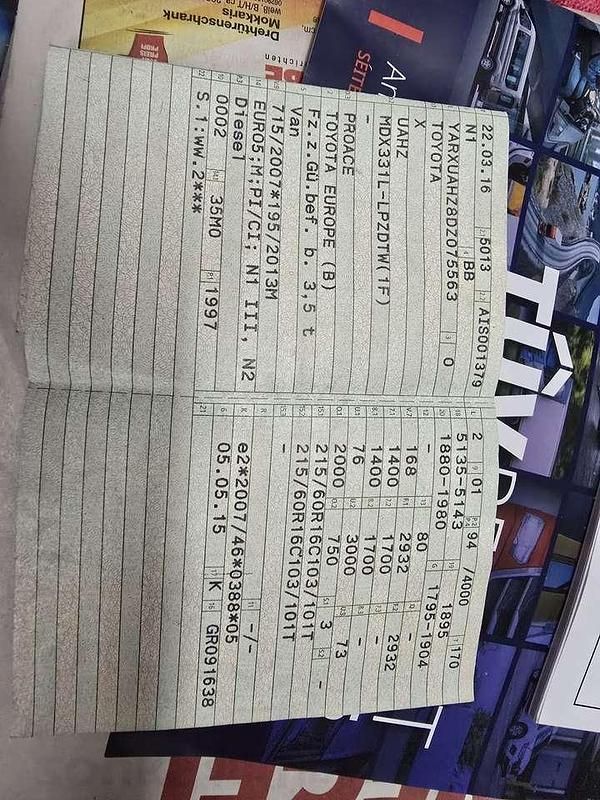 22.03.16 5013 AIS001379
N1 BB
YARXUAHZ8DZ075563 0
TOYOTA
X
UAHZ
MDX331L-LPZDTW(1F)
-
PROACE
TOYOTA EUROPE (B)
Fz.z.Gü.bef. b. 3,5 t
Van
715/2007*195/2013M
EURO5;M;PI/CI; N1 III, N2
Diesel
0002 35M0 1997
S.1:WW.2***
2 01 94 /4000 170
5135-5143 1895
1880-1980 1795-1904
- 80 -
168 2932 2932
1400 1700 -
1400 1700 -
76 3000 73
2000 750 3 -
215/60R16C103/101T
215/60R16C103/101T
-
e2*2007/46*0388*05 -/-
05.05.15 K GR091638
Drehtürenschrank
Mokkaris
PREIS
PROFI
SEITE